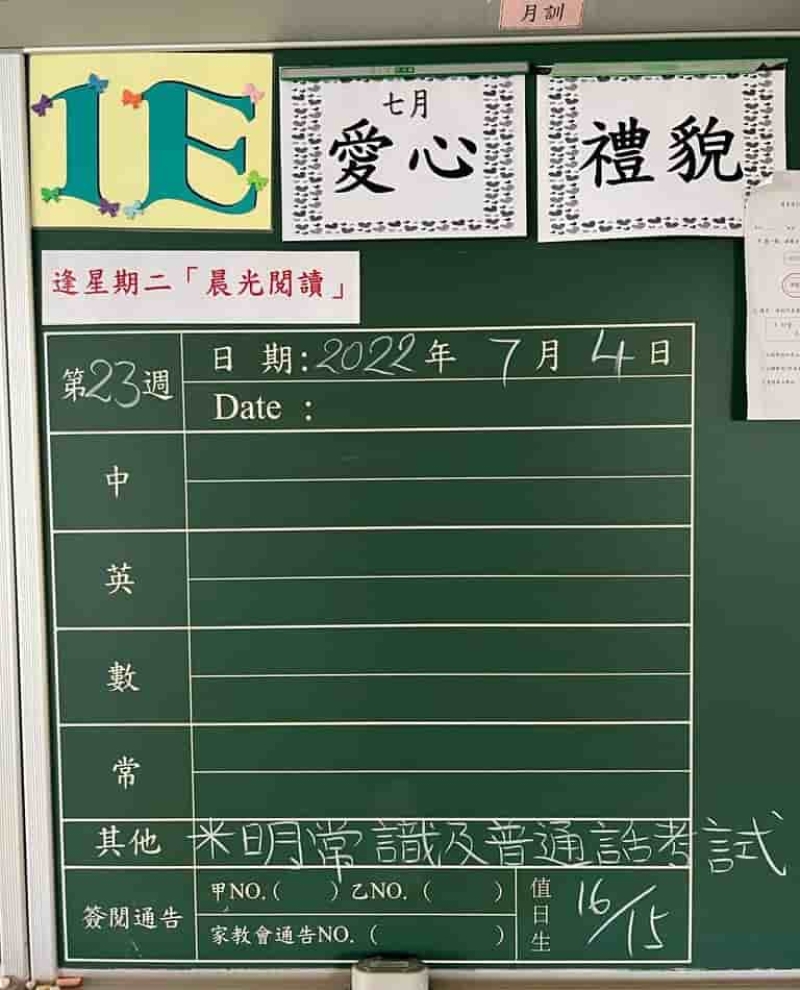 月訓
1E
七月
愛心
禮貌
逢星期二「晨光閱讀」
第23週
日 期:2022年 7月 4日
Date :
中
英
數
常
其他 *明常識及普通話考試
簽閱通告
甲NO.( ) 乙NO. ( )
家教會通告NO. ( )
值日生 16/15